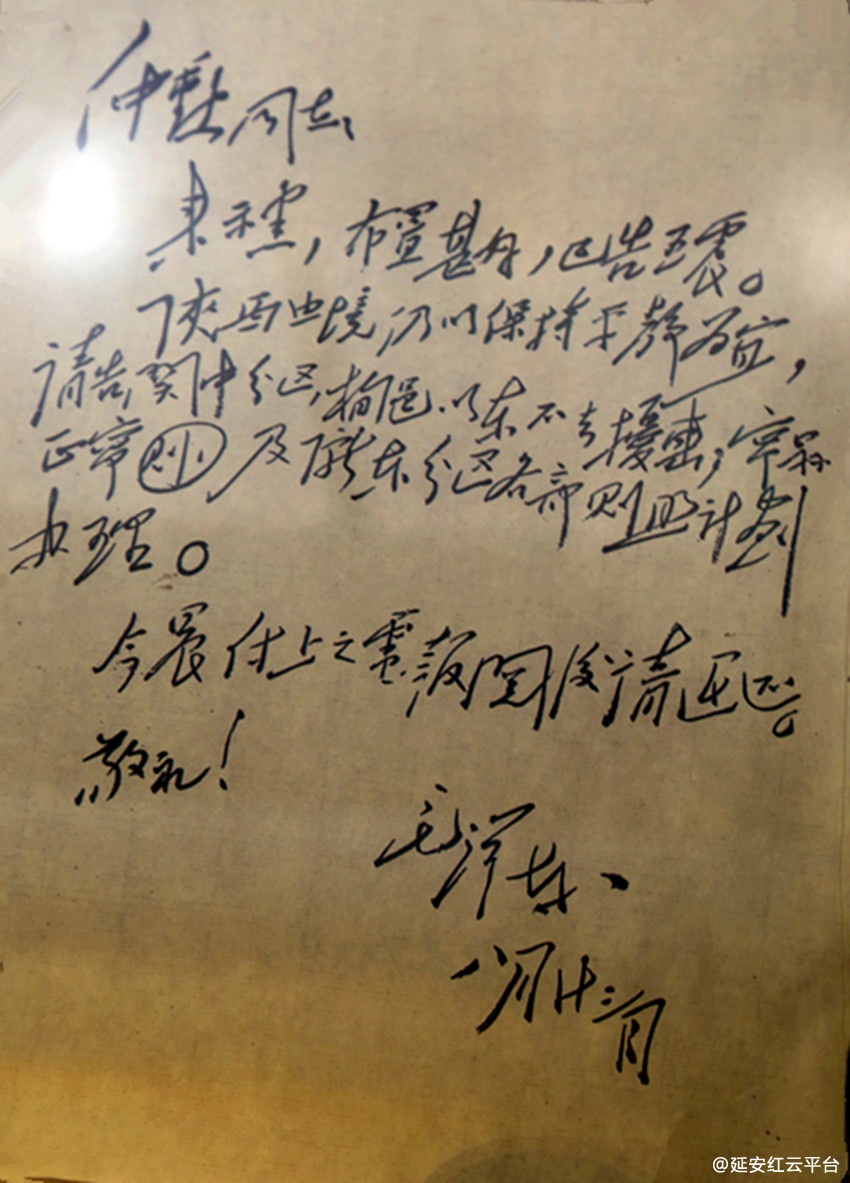 仲勋同志
来示悉，布置甚好，已告王震。
陕西边境仍以保持平静为宜，
请告关中分区，栒邑以东不去扰害，宁县
正宁（则）及陇东分区各部则照计划
办理。
今晨付上之电报阅后请退还。
敬礼！
毛泽东
八月廿三日
@延安红云平台